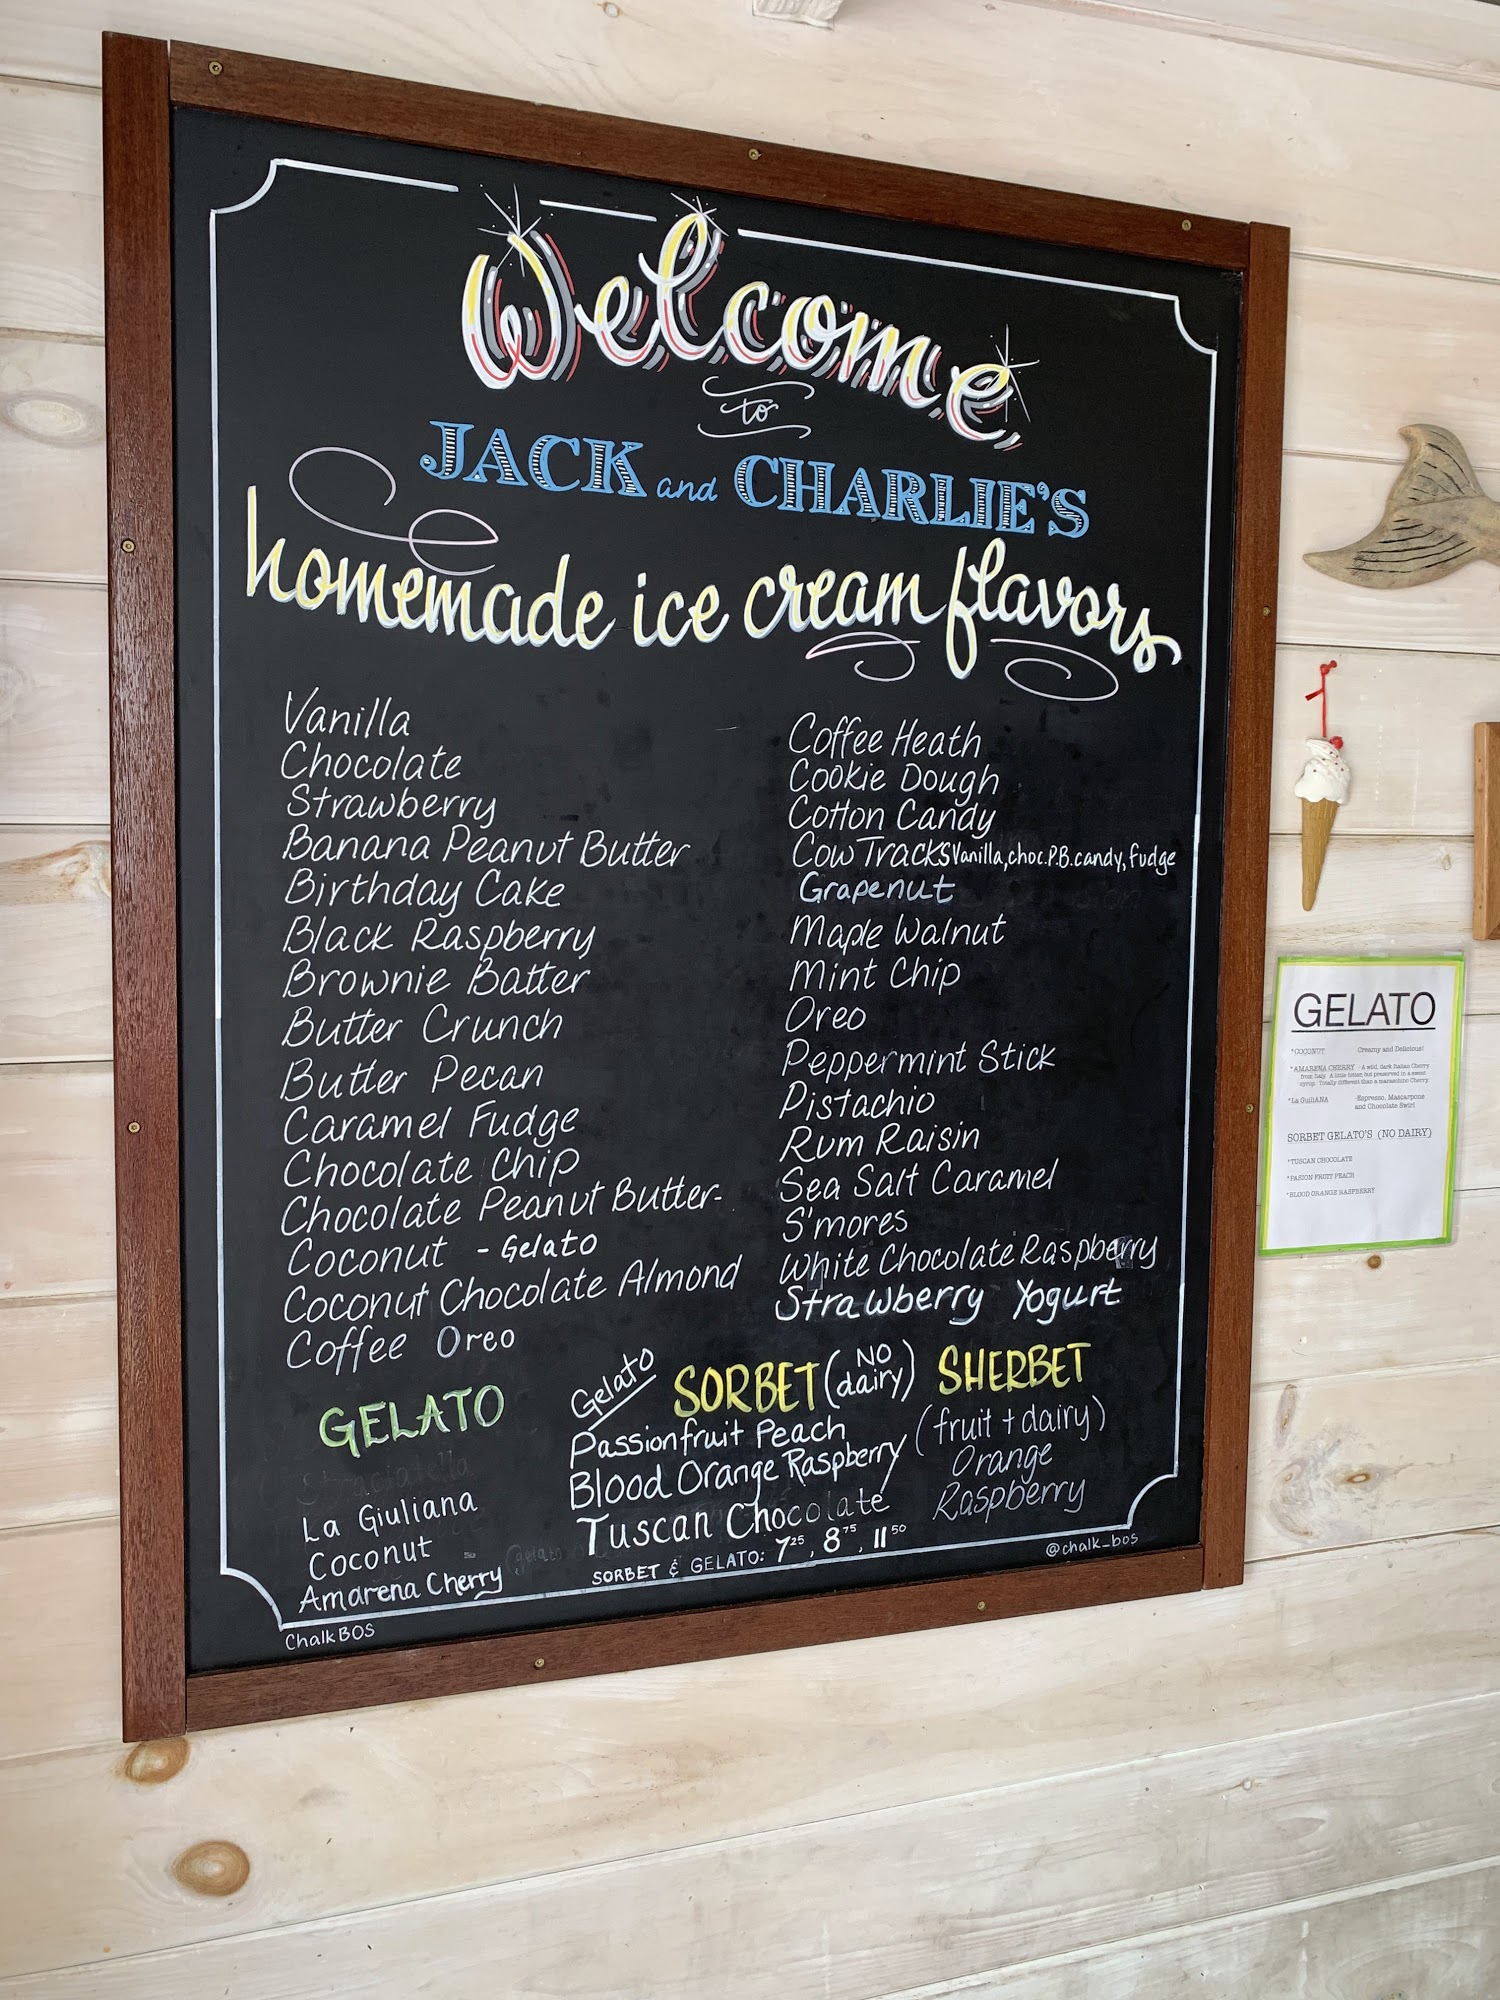 Welcome
to
JACK and CHARLIE'S
homemade ice cream flavors
Vanilla
Chocolate
Strawberry
Banana Peanut Butter
Birthday Cake
Black Raspberry
Brownie Batter
Butter Crunch
Butter Pecan
Caramel Fudge
Chocolate Chip
Chocolate Peanut Butter-
Coconut - Gelato
Coconut Chocolate Almond
Coffee Oreo
Coffee Heath
Cookie Dough
Cotton Candy
Cow Tracks Vanilla, choc. P.B. candy, fudge
Grapenut
Maple Walnut
Mint Chip
Oreo
Peppermint Stick
Pistachio
Rum Raisin
Sea Salt Caramel
S'mores
White Chocolate Raspberry
Strawberry Yogurt
GELATO
Straciatella
La Giuliana
Coconut
Amarena Cherry
Gelato SORBET (NO dairy)
Passionfruit Peach
Blood Orange Raspberry
Tuscan Chocolate
SORBET & GELATO: 7 25, 8 75, 11 50
SHERBET
(fruit + dairy)
Orange
Raspberry
@chalk_bos
ChalkBOS
GELATO
*COCONUT Creamy and Delicious!
*AMARENA CHERRY - A wild, dark Italian Cherry
from Italy. A little bitter but preserved in a sweet
syrup. Totally different than a maraschino Cherry.
*La GuiliANA -Espresso, Mascarpone
and Chocolate Swirl
SORBET GELATO'S (NO DAIRY)
*TUSCAN CHOCOLATE
*PASION FRUIT PEACH
*BLOOD ORANGE RASPBERRY